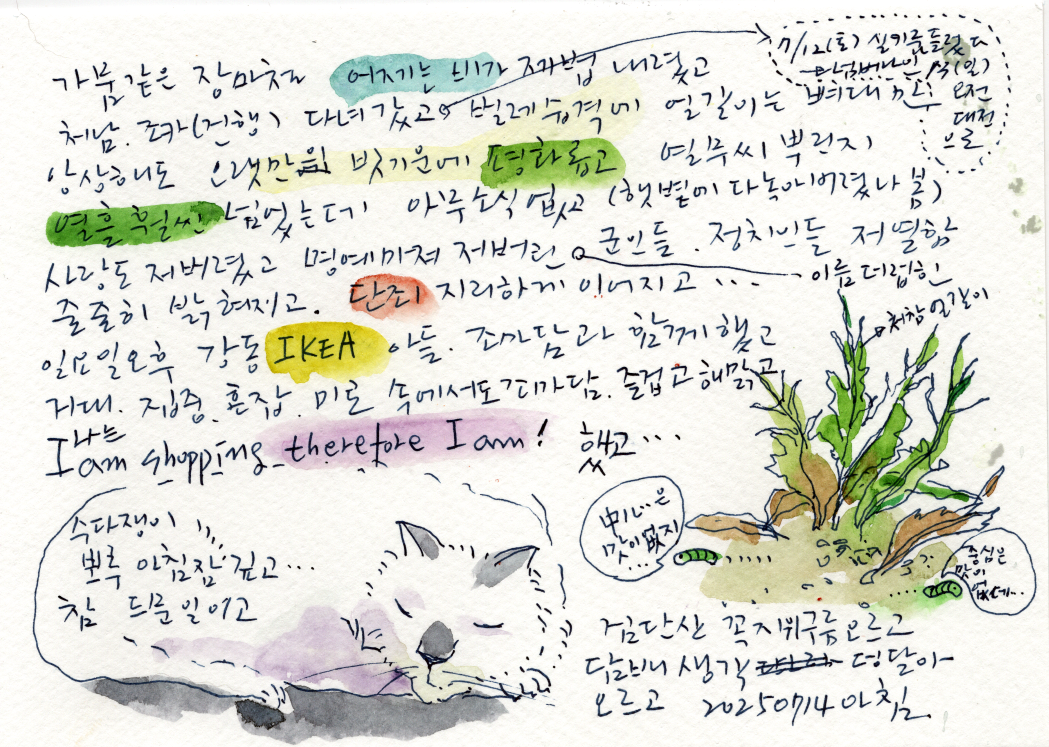 가뭄같은 장마처럼 어제는 비가 제법 내렸고
처남. 조카(건행) 다녀갔고 벌레습격에 얼갈이는 뼈대만
앙상해도 오랫만의 빗기운에 평화롭고 열무씨 뿌린지
열흘 훨씬 넘었는데 아무소식 없고 (햇볕에 다 녹아버렸나 봄)
사랑도 저버렸고 명예마져 저버린 군인들. 정치인들 저열함
줄줄히 밝혀지고. 단죄 지리하게 이어지고 ...
일요일오후 강동 IKEA 아들. 꼬마담과 함께 했고
거대. 집중. 혼잡. 미로 속에서도 꼬마담. 즐겁고 해맑고
나는
I am shopping therefore I am! 했고 ...
7/12(토)
13(일) 오전
대전
으로
이름 더럽힌
처참 얼갈이
수다쟁이
뽀후 아침잠 깊고 ...
참 드문일이고
뿌리은
맛이없지
...
중심은
맛이
없네...
검단산 꼭지위 구름오르고
답답해 생각 덩달아
오르고 20250714 아침.